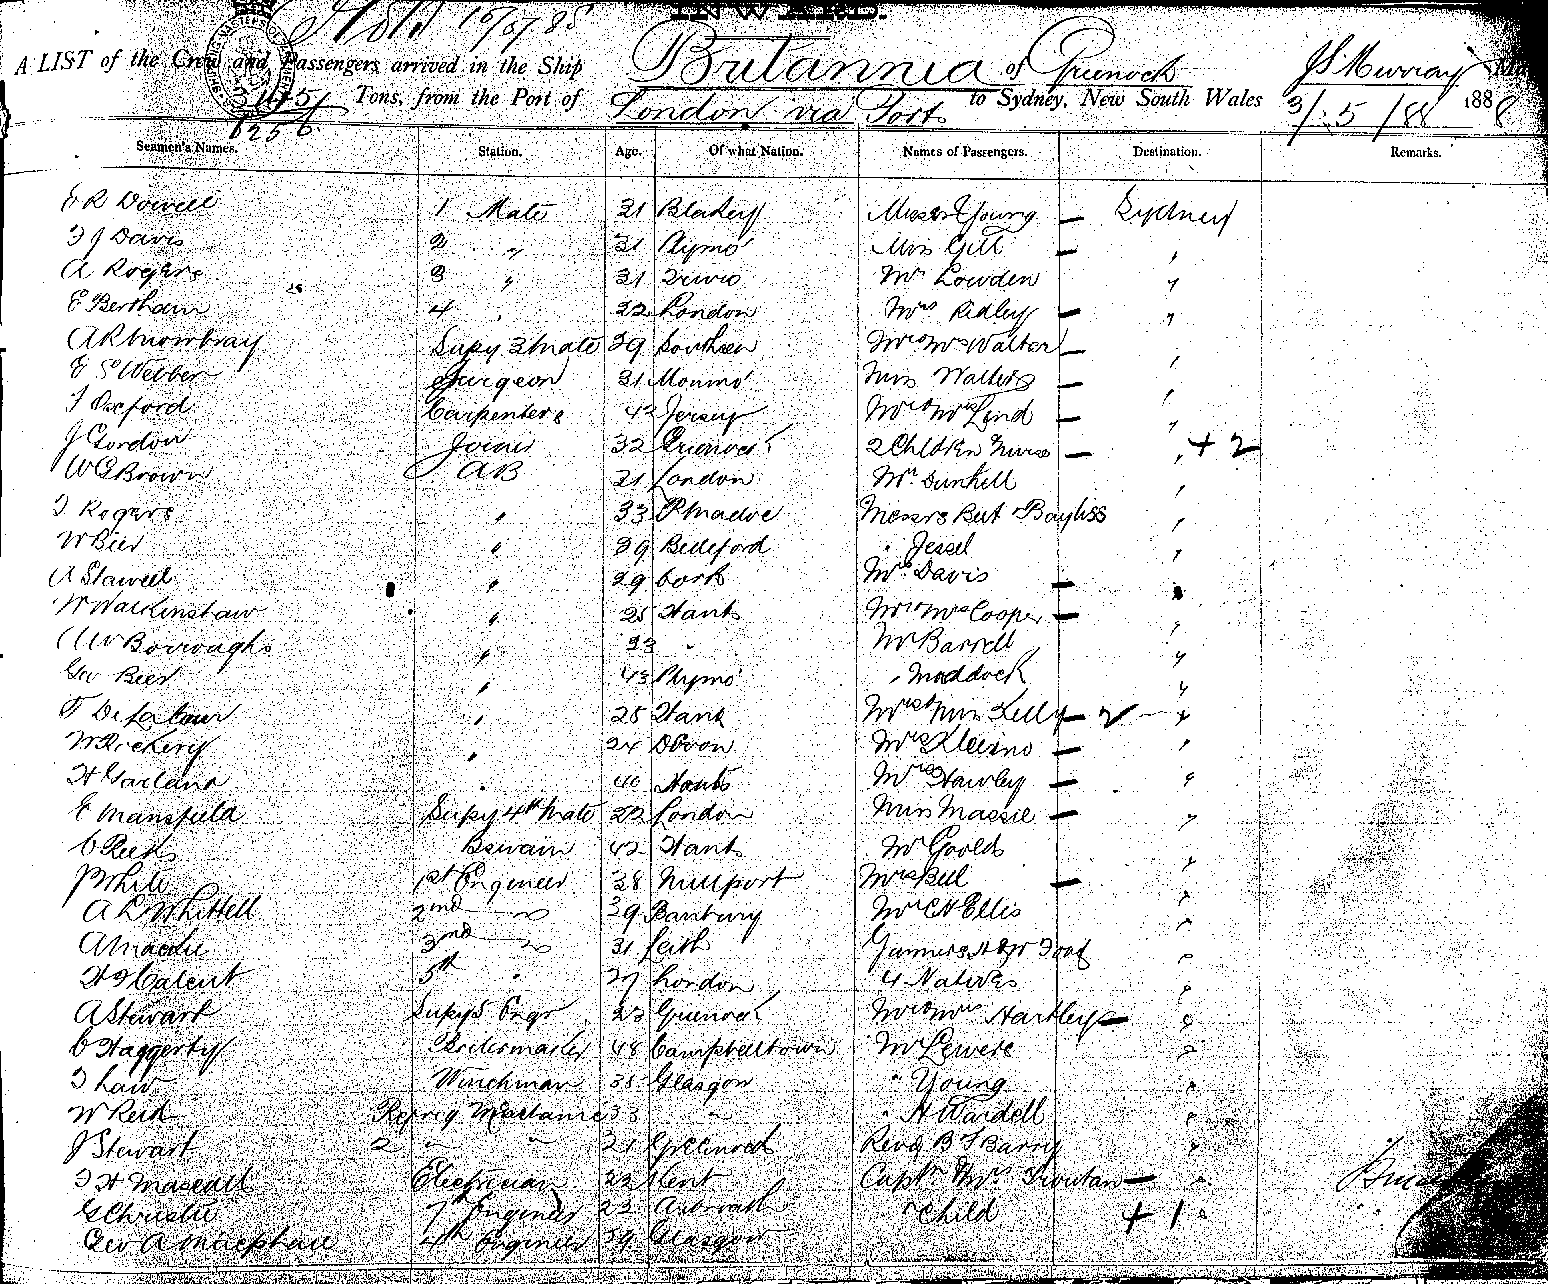 INWARD.
A LIST of the Crew and Passengers arrived in the Ship Britannia of Greenock J S Murray
Tons, from the Port of London via Ports to Sydney, New South Wales 3/5/88 1888
Seamen's Names. Station. Age. Of what Nation. Names of Passengers. Destination. Remarks.
E R Dowell 1 Mate 31 Young Sydney
F J Davis 2 " 31 Plymo' Miss Gill "
A Rogers 3 " 31 Mr Lowden "
E Bertham 4 " 32 London Mrs Ridley "
Supy 3 Mate 39 Southsea Mr & Mrs Walter "
E S Webber Surgeon 31 Miss Walters "
T Oxford Carpenters 42 Jersey Mr & Mrs Lind "
J Gordon Joiner 32 Greenock 2 Children Nurse " + 2
W G Brown AB 21 London Mr Dunkell "
T Rogers " 33 P Madoc Messrs But Bayliss "
W Beer " 39 Bideford " Jessel "
A Stawell " 29 Cork Mrs Davis
W Walkinshaw " 25 Hants Mr & Mrs Cooper "
Burroughs " 33 " Mr Barrell "
Geo Beer " 43 Plymo' " Maddock "
F Delatour " 28 Hants Kelly "
W Vickery " 24 Devon Mrs "
H Garland 40 Hants Mrs Hawley "
E Mansfield Supy 4th Mate 22 London Miss Massie "
C Reeks Bswain 42 Hants Mr Goold "
P White 1st Engineer 38 Millport Mrs Bell "
A L Whittell 2nd " 39 Banbury Mr C H Ellis "
A Mackie 3rd " 31 Leith Gunners Foot "
H J Calcut 5th " 27 London 4 Natives "
A Stewart Supy 5 Engr 23 Greenock Mr & Mrs Hartley "
C Haggerty 48 Campbelltown Mr Lewere "
T Law Winchman 38 Glasgow " Young "
W Reid Refrig 33 " " H Wardell "
J Stewart 2 " " 21 Greenock Revd B J Barry "
T H Mascall Electrician 22 Kent Capt & Mrs Troutan "
G Christie 7th Engineer 23 Arbroath " Child + 1 "
Geo A Macphail 4th Engineer 39 Glasgow